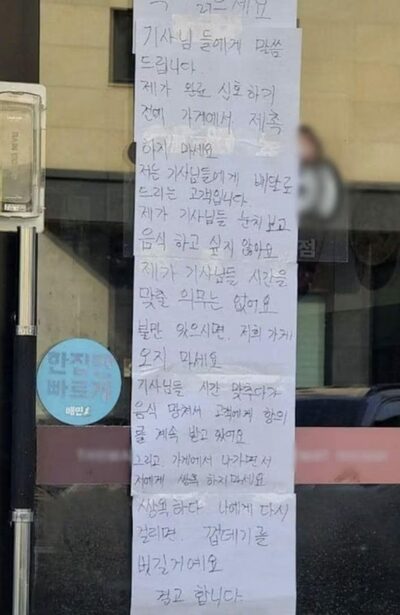 꼭 읽으세요
기사님들에게 말씀
드립니다
제가 완료 신호하기
전에 가게에서 재촉
하지 마세요
저는 기사님들에게 배달료
드리는 고객입니다
제가 기사님들 눈치보고
음식 하고 싶지 않아요
제가 기사님들 시간을
맞출 의무는 없어요
불만 있으시면, 저희 가게
오지 마세요
기사님들 시간 맞추다가
음식 망쳐서 고객에게 항의
를 계속 받고 있어요
그리고 가게에서 나가면서
저에게 쌍욕 하지마세요
쌍욕하다 나에게 다시
걸리면, 껍데기를
벗길거예요
경고 합니다.
한집만
빠르게
배민1
점